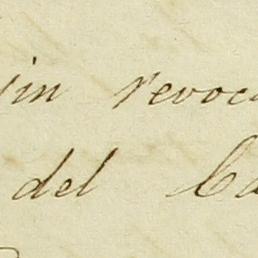 sin revoca
del Ca